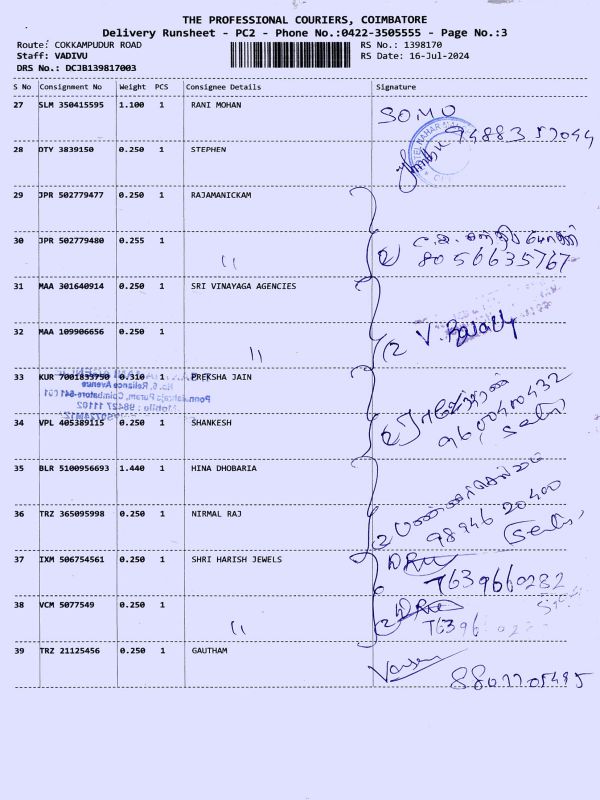 THE PROFESSIONAL COURIERS, COIMBATORE
Delivery Runsheet - PC2 - Phone No.:0422-3505555 - Page No.:3
Route: COKKAMPUDUR ROAD RS No.: 1398170
Staff: VADIVU RS Date: 16-Jul-2024
DRS No.: DCJB139817003
S No Consignment No Weight PCS Consignee Details Signature
27 SLM 350415595 1.100 1 RANI MOHAN
SOMU
28 DTY 3839150 0.250 1 STEPHEN
29 JPR 502779477 0.250 1 RAJAMANICKAM
30 JPR 502779480 0.255 1
8056635767
31 MAA 301640914 0.250 1 SRI VINAYAGA AGENCIES
32 MAA 109906656 0.250 1
33 KUR 7001833750 0.310 1 PREKSHA JAIN
No. 5, Reliance Avenue
34 VPL 405389115 0.250 1 SHANKESH
35 BLR 5100956693 1.440 1 HINA DHOBARIA
36 TRZ 365095998 0.250 1 NIRMAL RAJ
98946 20400
37 IXM 506754561 0.250 1 SHRI HARISH JEWELS
7639660282
38 VCM 5077549 0.250 1
39 TRZ 21125456 0.250 1 GAUTHAM